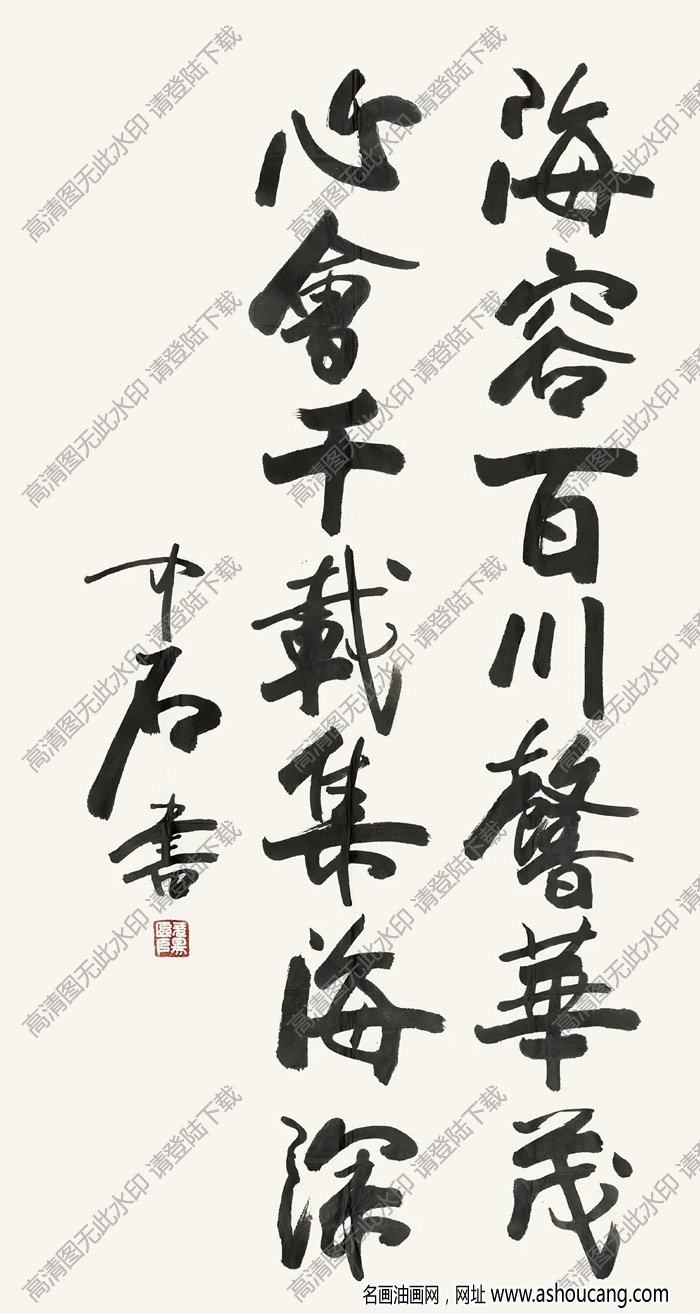 海容百川馨華茂
心會千載集海深
中石書
高清图无此水印 请登陆下载
名画油画网，网址 www.ashoucang.com